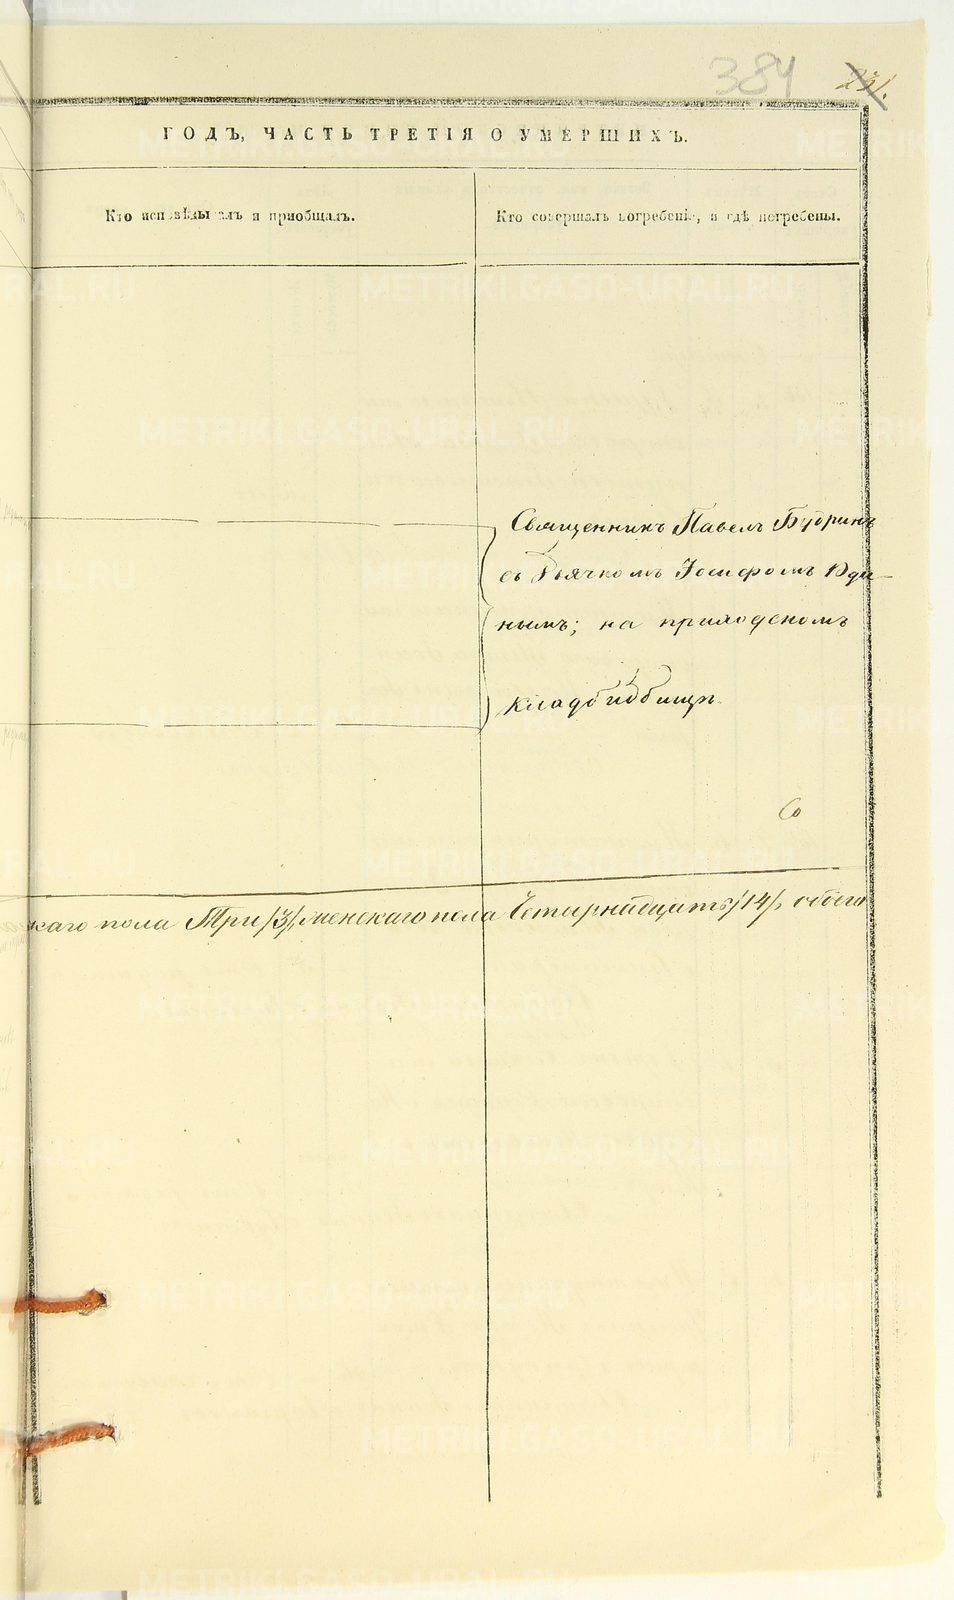 384
231.
ГОДЪ, ЧАСТЬ ТРЕТІЯ О УМЕРШИХЪ.
Кто исповѣдывалъ и пріобщалъ.
Кто совершалъ погребеніе, и гдѣ погребены.
Священникъ Павелъ Будринъ
съ Дьячкомъ Іосифомъ Юди-
нымъ; на приходскомъ
кладбищѣ.
каго пола Три /3/, женскаго пола Четырнадцать /14/, обоего
METRIKI.GASO-URAL.RU